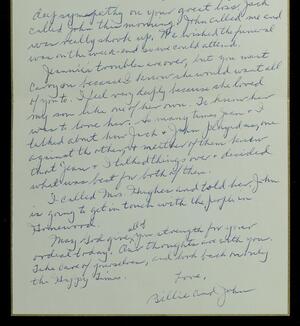 deep sympathy on your great loss. Jack
called John this morning & John called me and
was really shook up. We wished the funeral
was on the week-end so we could attend.
Jeannie's troubles are over, but you must
carry on because I know she would want all
of you to. I feel very deeply because she loved
my son like one of her own. To know her
was to love her. So many times Jean & I
talked about how Jack & John played us, one
against the other, & neither of them knew
that Jean & I talked things over & decided
what was best for both of them.
I called Mrs. Hughes and told her. John
is going to get in touch with the people in
Homewood.
May God give you all strength for your
ordeal today. Our thoughts are with you.
Take care of yourselves, and look back on only
the Happy Times.
Love,
Billie and John